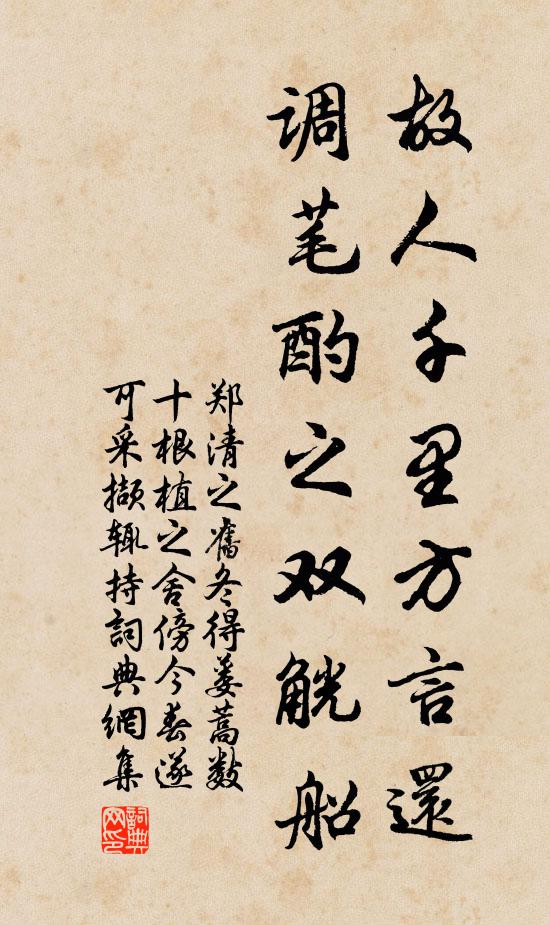 故人千里方言還
调芼酌之双觥船
郑清之舊冬得蒌蒿数
十根植之舍傍今春遂
可采撷辄持詞典網集
詞典网印